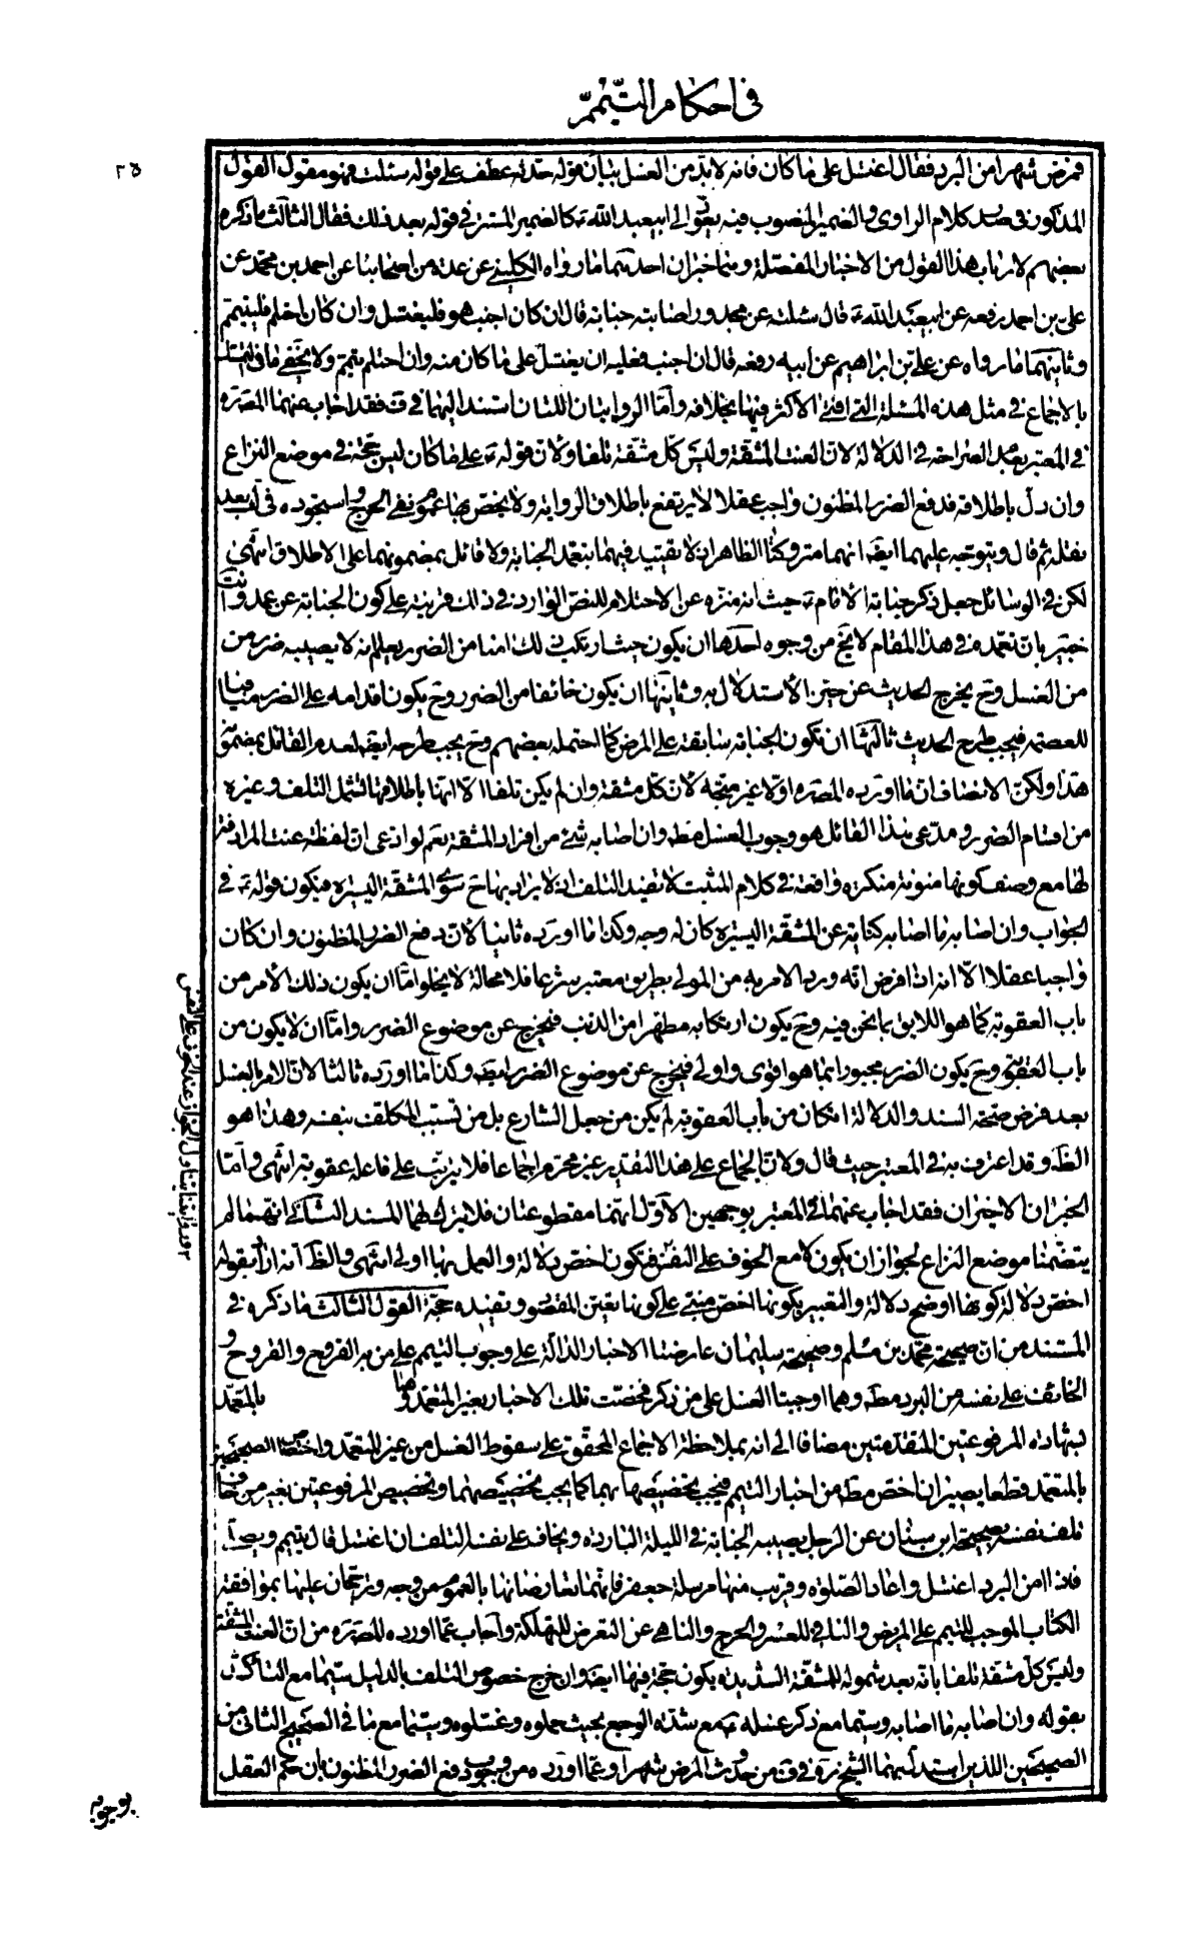 في احكام التيمم
٢٥
فمرض شهرا من البرد فقال اغتسل على ما كان فانه لا بد من الغسل بيان قوله حدثه عطف على قوله سئلت فهو مقول القول
المذكور في صدر كلام الراوي والضمير المنصوب فيه يعود الى ابيعبد الله ع كالضمير المستتر في قوله بعد ذلك فقال الثالث ما ذكره
بعضهم لارباب هذا القول من الاخبار المفصلة وهما خبران احدهما ما رواه الكليني عن عدة من اصحابنا عن احمد بن محمد عن
علي بن احمد رفعه عن ابيعبد الله ع قال سئلته عن مجدور اصابته جنابة قال ان كان اجنب هو فليغتسل وان كان احتلم فليتيمم
وثانيهما ما رواه عن علي بن ابراهيم عن ابيه رفعه قال ان اجنب فعليه ان يغتسل على ما كان منه وان احتلم تيمم ولا يخفى ما في التمسك
بالاجماع في مثل هذه المسئلة التي افتى الاكثر فيها بخلافه وامّا الروايتان اللتان استند اليهما في ف فقد اجاب عنهما المصنف ره
في المعتبر بعدم الصراحة في الدلالة لان العنت المشقة وليس كل مشقة تلفا ولان قوله ع على ما كان ليس حجة في موضع النزاع
وان دل باطلاقه فدفع الضرر المظنون واجب عقلا لا يرتفع باطلاق الرواية ولا يخص بها عموم نفي الحرج واستجوده في ك بعد
نقله ثم قال ويتوجه عليهما ايضا انهما متروكتا الظاهر اذ لا تقييد فيهما بتعمد الجنابة ولا قائل بمضمونهما على الاطلاق انتهى
لكن في الوسائل جعل ذكر جنابة الامام ع حيث انه منزه عن الاحتلام للنص الوارد في ذلك قرينة على كون الجنابة عن عمد وانت
خبير بان تعمده في هذا المقام لا يخ من وجوه احدها ان يكون حيث ارتكب ذلك امنا من الضرر بعلم انه لا يصيبه ضرر من
من الغسل وح يخرج الحديث عن حيز الاستدلال به وثانيها ان يكون خائفا من الضرر وح يكون اقدامه على الضرر منافيا
للعصمة فيجب طرح الحديث ثالثها ان تكون الجنابة سابقة على المرض كما احتمله بعضهم وح يجب طرحه ايضا لعدم القائل بمضمونه
هذا ولكن الانصاف ان ما اورده المصنف ره اولا غير متجه لان كل مشقة وان لم يكن تلفا الا انها باطلاقها تشمل التلف وغيره
من اقسام الضرر ومدعى هذا القائل هو وجوب الغسل مط وان اصابه شيء من افراد المشقة نعم لو ادعى ان لفظة عنت المرادفة
لها مع وصف كونها منونة منكرة واقعة في كلام المثبت لا تفيد التلف اذ لا يراد بها ح سوى المشقة اليسيرة فيكون قوله ع في
الجواب وان اصابه ما اصابه كناية عن المشقة اليسيرة كان له وجه وكذا ما اورده ثانيا لان دفع الضرر المظنون وان كان
واجبا عقلا الّا انه اذا فرض انّه ورد الامر به من المولى بطريق معتبر شرعا فلا محالة لا يخلو امّا ان يكون ذلك الأمر من
باب العقوبة كما هو اللايق بما نحن فيه وح يكون ارتكابه مطهرا من الذنب فيخرج عن موضوع الضرر وامّا ان لا يكون من
باب العقوبة وح يكون الضرر مجبورا بما هو اقوى واولى فيخرج عن موضوع الضرر ايضا وكذا ما اورده ثالثا لان الامر بالغسل
بعد فرض صحة السند والدلالة ان كان من باب العقوبة لم يكن من جعل الشارع بل من تسبب المكلف بنفسه وهذا هو
الظ وقد اعترف به في المعتبر حيث قال ولان الجماع على هذا التقدير غير محرم اجماعا فلا يترتب على فاعله عقوبة انتهى وامّا
الخبران الاخيران فقد اجاب عنهما في المعتبر بوجهين الأوّل انهما مقطوعتان فلا يترك لهما المسند الثاني انهما لم
يتضمنا موضع النزاع لجواز ان يكون لا مع الخوف على النفس فتكون اخص دلالة والعمل بها اولى انتهى والظ انه اراد بقوله
اخص دلالة كونها اوضح دلالة والتعبير بكونها اخص مبني على كونها بعين المقصود وتفيده حجة القول الثالث ما ذكره في
المستند من ان صحيحة محمد بن مسلم وصحيحة سليمان عارضتا الاخبار الدالة على وجوب التيمم على من به القروح والجروح و
الخائف على نفسه من البرد مط وهما اوجبتا الغسل على من ذكر فخصت تلك الاخبار بغير المتعمد وهما بالمتعمد
بشهادة المرفوعتين المتقدمتين مضافا الى انه بملاحظة الاجماع المحقق على سقوط الغسل من غير المتعمد واختصاص الصحيحتين
بالمتعمد قطعا يصيران اخص مط من اخبار التيمم فيجب تخصيصها بهما كما يجب تخصيصهما وتخصيص المرفوعتين بغير من خاف
تلف نفسه بصحيحة ابن سنان عن الرجل يصيبه الجنابة في الليلة الباردة ويخاف على نفسه التلف ان اغتسل قال يتيمم ويصلي
فاذا امن البرد اغتسل واعاد الصلوة وقريب منها مرسلة جعفر فانهما تعارضانها بالعموم من وجه وترجحان عليها بموافقة
الكتاب الموجب للتيمم على المريض والنافي للعسر والحرج والناهي عن التعرض للتهلكة واجاب عمّا اورده المصنف ره من ان العنت المشقة
وليس كل مشقة تلفا بانه بعد شموله للمشقة الشديدة يكون حجة فيها ايضا وان خرج خصوص التلف بالدليل سيما مع التأكيد
بقوله وان اصابه ما اصابه وسيما مع ذكر غسله ع مع شدة الوجع بحيث حملوه وغسلوه وسيما مع ما في الصحيح الثاني من
الصحيحين اللذين استدل بهما الشيخ ره في ف من حدوث المرض شهرا وعمّا اورده من وجوب دفع الضرر المظنون بان حكم العقل
بوجوبه